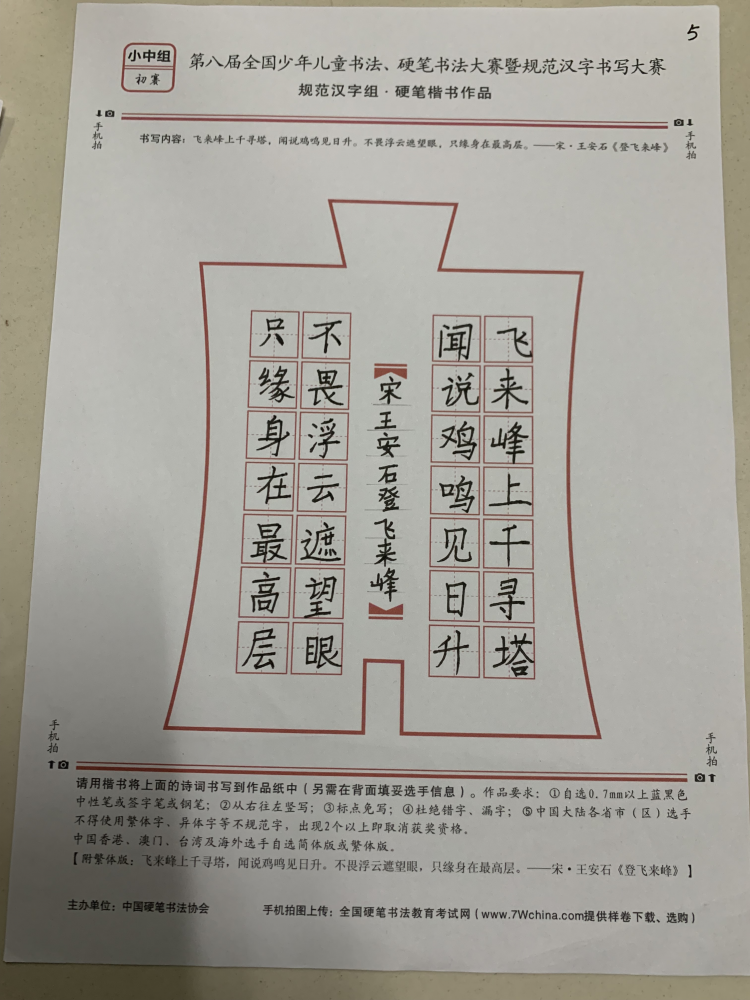 5
小中组
初赛
第八届全国少年儿童书法、硬笔书法大赛暨规范汉字书写大赛
规范汉字组·硬笔楷书作品
手机拍
手机拍
书写内容：飞来峰上千寻塔，闻说鸡鸣见日升。不畏浮云遮望眼，只缘身在最高层。——宋·王安石《登飞来峰》
飞来峰上千寻塔
闻说鸡鸣见日升
宋王安石登飞来峰
不畏浮云遮望眼
只缘身在最高层
手机拍
手机拍
请用楷书将上面的诗词书写到作品纸中（另需在背面填妥选手信息）。作品要求：①自选0.7mm以上蓝黑色
中性笔或签字笔或钢笔；②从右往左竖写；③标点免写；④杜绝错字、漏字；⑤中国大陆各省市（区）选手
不得使用繁体字、异体字等不规范字，出现2个以上即取消获奖资格。
中国香港、澳门、台湾及海外选手自选简体版或繁体版。
【附繁体版：飛來峰上千尋塔，聞説鷄鳴見日升。不畏浮雲遮望眼，只緣身在最高層。——宋·王安石《登飛來峰》】
主办单位：中国硬笔书法协会
手机拍图上传：全国硬笔书法教育考试网（www.7Wchina.com提供样卷下载、选购）